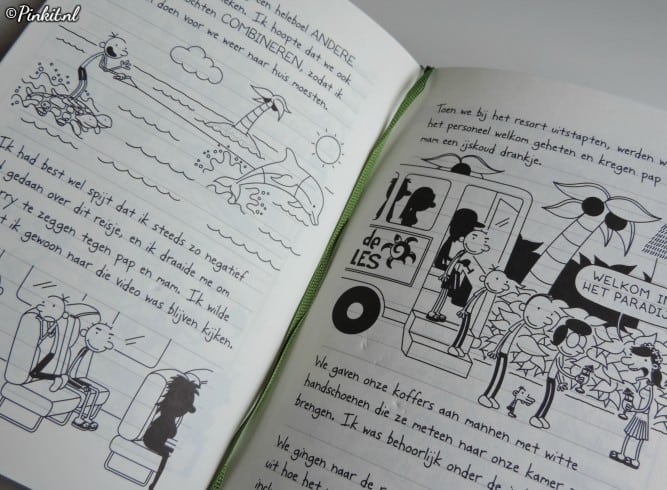 ©Pinkit.nl
een heleboel ANDERE
Ik hoopte dat we ook
COMBINEREN, zodat ik
doen voor we weer naar huis moesten.
Ik had best wel spijt dat ik steeds zo negatief
gedaan over dit reisje, en ik draaide me om
te zeggen tegen pap en mam. Ik wilde
ik gewoon naar die video was blijven kijken.
Toen we bij het resort uitstapten, werden we
het personeel welkom geheten en kregen pap
mam een ijskoud drankje.
de
LES
WELKOM I
HET PARADI
We gaven onze koffers aan mannen met witte
handschoenen die ze meteen naar onze kamer
brengen. Ik was behoorlijk onder de
We gingen naar de
uit hoe het